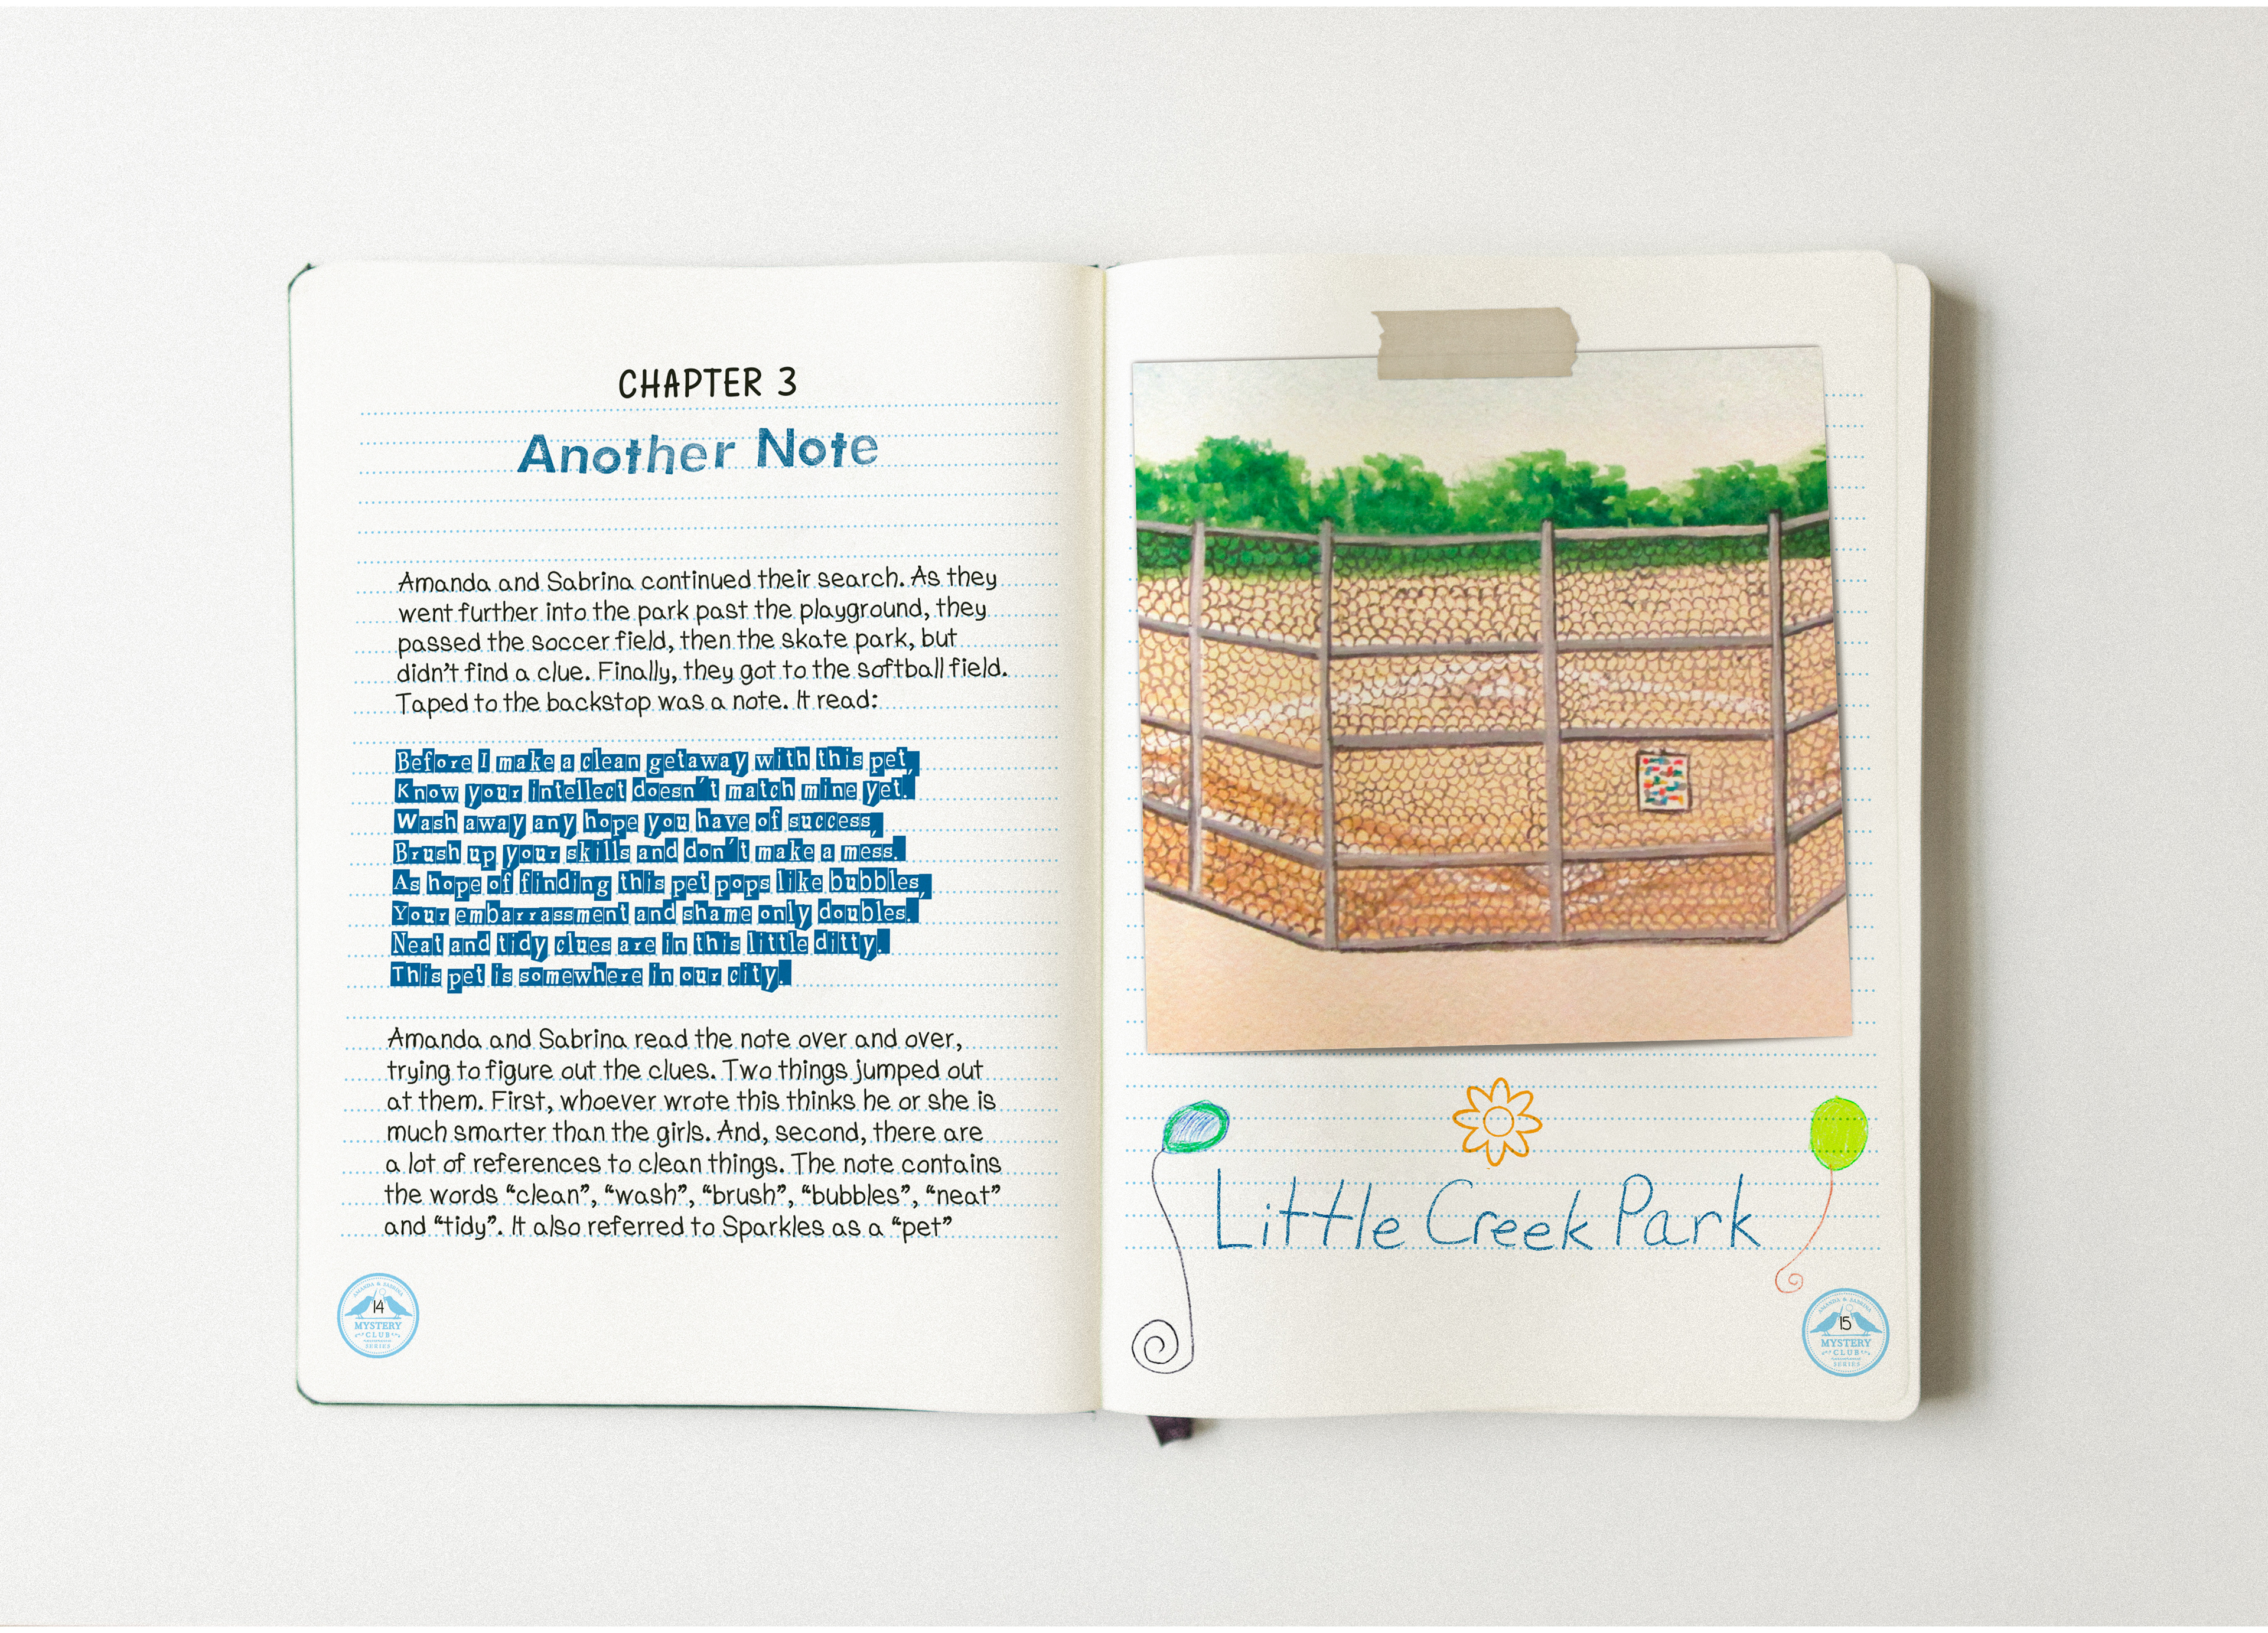 CHAPTER 3
Another Note
Amanda and Sabrina continued their search. As they
went further into the park past the playground, they
passed the soccer field, then the skate park, but
didn't find a clue. Finally, they got to the softball field.
Taped to the backstop was a note. It read:
Before I make a clean getaway with this pet,
Know your intellect doesn't match mine yet.
Wash away any hope you have of success,
Brush up your skills and don't make a mess.
As hope of finding this pet pops like bubbles,
Your embarrassment and shame only doubles.
Neat and tidy clues are in this little ditty.
This pet is somewhere in our city.
Amanda and Sabrina read the note over and over,
trying to figure out the clues. Two things jumped out
at them. First, whoever wrote this thinks he or she is
much smarter than the girls. And, second, there are
a lot of references to clean things. The note contains
the words “clean”, “wash”, “brush”, “bubbles”, “neat”
and “tidy”. It also referred to Sparkles as a “pet”
AMANDA & SABRINA
14
MYSTERY
CLUB
SERIES
Little Creek Park
AMANDA & SABRINA
15
MYSTERY
CLUB
SERIES